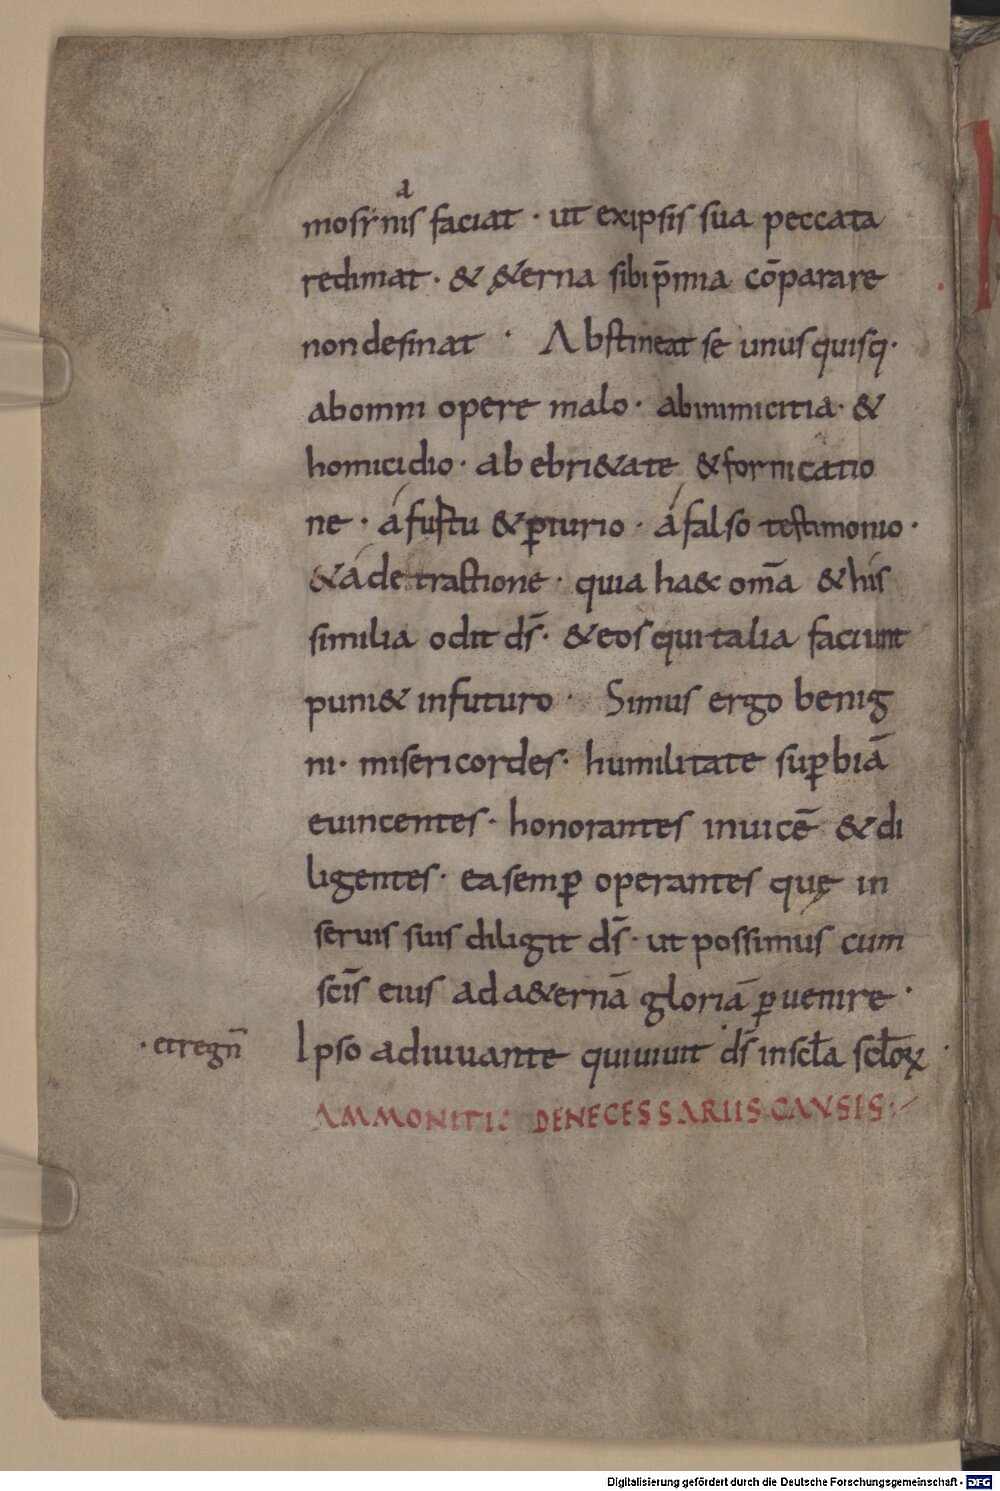 mosinis faciat · ut exipsis sua peccata
a
redimat · & &erna sibi p̄mia cōparare
non desinat · Abstineat se unusquisq·
ab omni opere malo · ab inimicitia · &
homicidio · ab ebri&ate & fornicatio
ne · á fustu & ꝑiurio · á falso testimonio ·
& á detractione · quia haec om̄a & his
similia odit ds̄ · & eos qui talia faciunt
puni& in futuro · Simus ergo benig
ni · misericordes · humilitate suꝑbiā
euincentes · honorantes inuicē & di
ligentes · ea semꝑ operantes quę in
seruis suis diligit ds̄ · ut possimus cum
sc̄is eius ad a&ernā gloriā ꝑuenire ·
· et regn̄
Ipso adiuuante qui uiuit · ds̄ in scl̄a scl̄oꝝ ·
AMMONITI: DE NECESSARIIS CAUSIS:
Digitalisierung gefördert durch die Deutsche Forschungsgemeinschaft - DFG